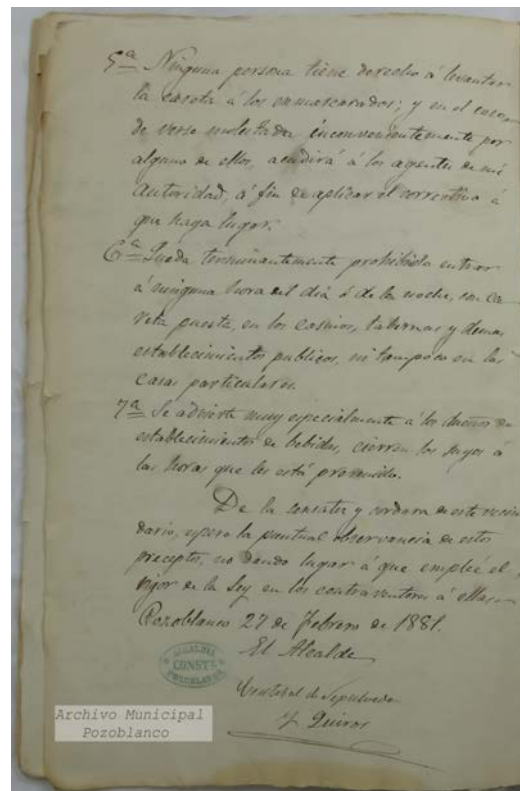 5ª Ninguna persona tiene derecho á levantar
la careta á los enmascarados; y en el caso
de verse molestada inconvenientemente por
alguno de ellos, acudirá á los agentes de mi
Autoridad, á fin de aplicar el correctivo á
que haya lugar.
6ª Queda terminantemente prohibido entrar
á ninguna hora del día ó de la noche, con ca-
reta puesta, en los casinos, tabernas y demas
establecimientos publicos, ni tampoco en las
casas particulares.
7ª Se advierte muy especialmente á los dueños de
establecimientos de bebidas, cierren los suyos á
las horas que les está prevenido.
De la sensatez y cordura de este vecin
dario, espero la puntual observancia de estos
preceptos, no dando lugar á que empleé el
rigor de la Ley en los contraventores á ellos.
Pozoblanco 27 de Febrero de 1881.
El Alcalde
ALCALDIA
CONSTL
POZOBLANCO
de Sepulveda
y Quiros
Archivo Municipal
Pozoblanco